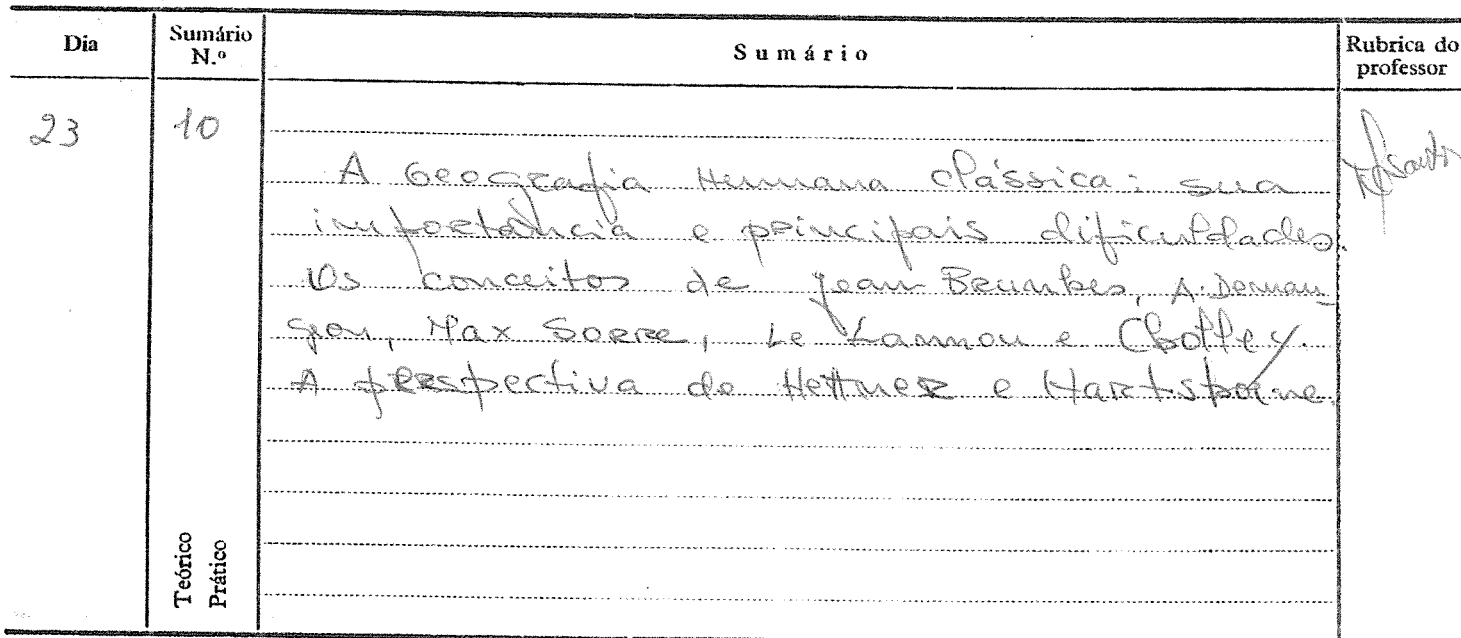 Dia Sumário N.º Sumário Rubrica do professor
23 10
A Geografia Humana clássica: sua
importância e principais dificuldades.
Os conceitos de Jean Brunhes, A. Deman-
geon, Max Sorre, Le Lannou e Cholley.
A perspectiva de Hettner e Hartshorne.
Teórico
Prático